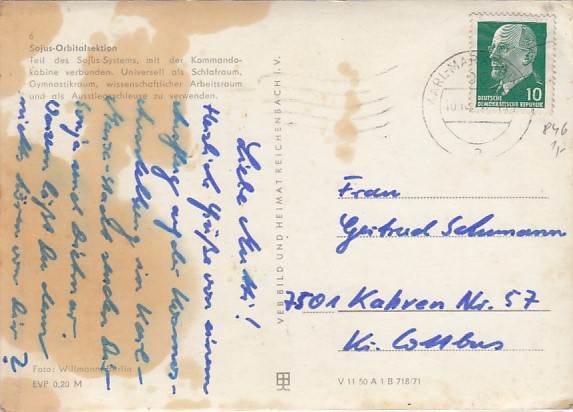 6
Sojus-Orbitalsektion
Teil des Sojus-Systems, mit der Kommando-
kabine verbunden. Universell als Schlafraum,
Gymnastikraum, wissenschaftlicher Arbeitsraum
und als Ausstiegschleuse zu verwenden.
Liebe Mutti!
Herzliche Grüße von einem
Ausflug auf die Kosmos-
in Karl-
Marx-Stadt senden Dir
Sonja und Dietmar.
Warum läßt Du denn
nichts hören von Dir?
Foto: Willmann-Berlin
EVP 0,20 M
VEB BILD UND HEIMAT REICHENBACH I. V.
KARL-MARX
DEUTSCHE
DEMOKRATISCHE REPUBLIK
10
846
1,-
Frau
Gertrud Schumann
7501 Kahren Nr. 57
Kr. Cottbus
V 11 50 A 1 B 718/71